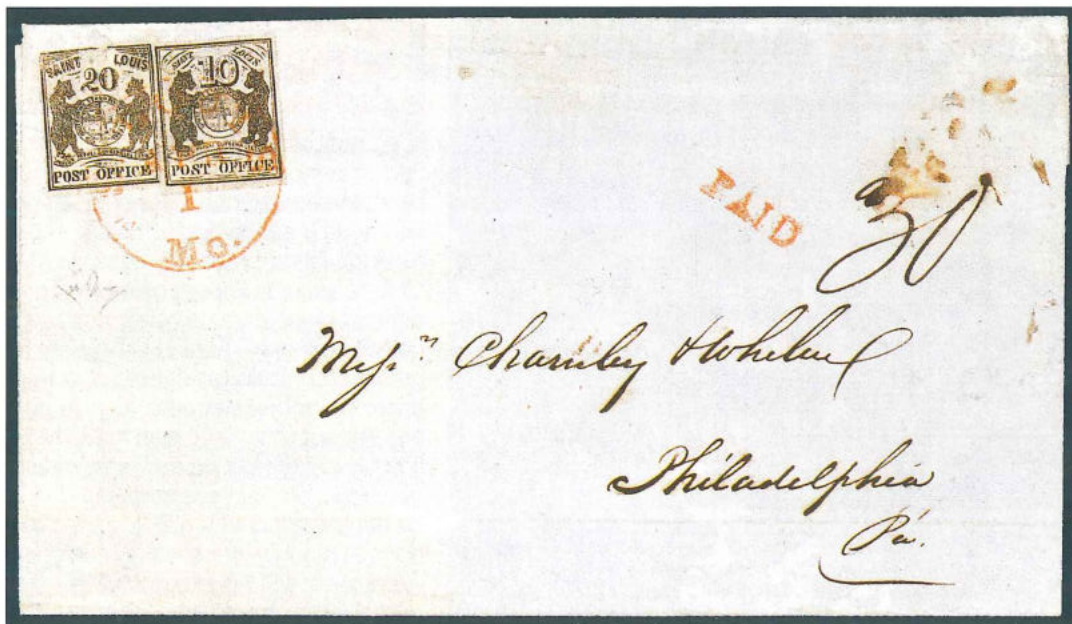 SAINT LOUIS
20
POST OFFICE
SAINT LOUIS
10
POST OFFICE
1
MO.
PAID
30
Messrs Charnley & Whelen
Philadelphia
Pa.